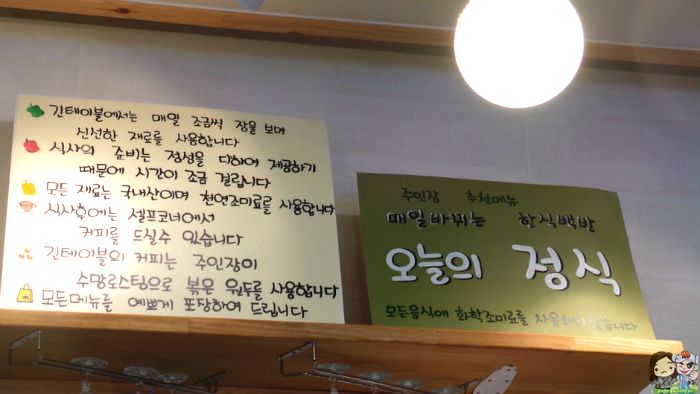 긴테이블에서는 매일 조금씩 장을 보며
신선한 재료를 사용합니다
식사의 준비는 정성을 다하여 제공하기
때문에 시간이 조금 걸립니다
모든 재료는 국내산이며 천연조미료를 사용합니다
식사후에는 셀프코너에서
커피를 드실수 있습니다
긴테이블의 커피는 주인장이
수망로스팅으로 볶은 원두를 사용합니다
모든메뉴를 예쁘게 포장하여 드립니다
주인장 추천메뉴
매일바뀌는 한식백반
오늘의 정식
모든음식에 화학조미료를 사용하지 않습니다